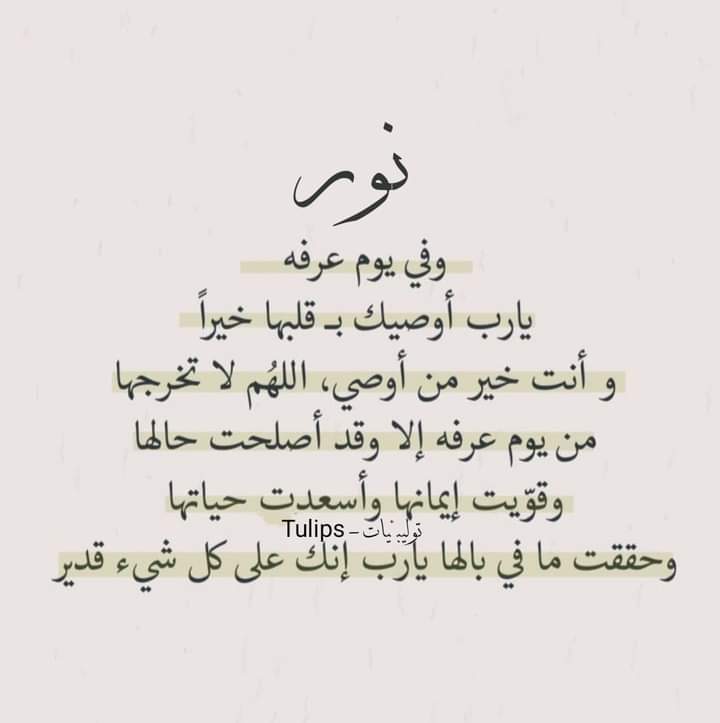 نور
وفي يوم عرفه
يارب أوصيك بـ قلبها خيراً
و أنت خير من أوصي، اللهُم لا تخرجها
من يوم عرفه إلا وقد أصلحت حالها
وقوّيت إيمانها وأسعدت حياتها
توليبيات - Tulips
وحققت ما في بالها يارب إنك على كل شيء قدير